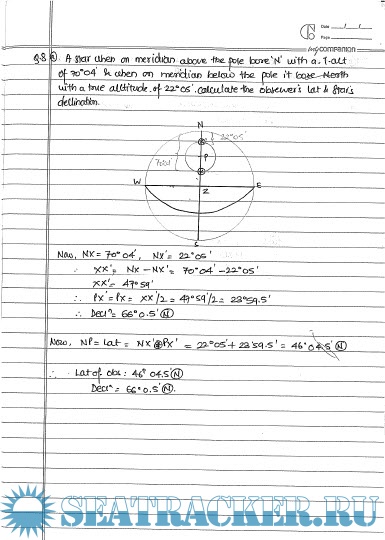 Date / /
Page
my COMPANION
Q.8 A A star when on meridian above the pole bore 'N' with a T-alt
of 70°04' & when on meridian below the pole it bore North
with a true altitude of 22°05'. Calculate the observer's lat & star's
declination.
N
22°05'
P
70°04'
W
E
Z
S
Now, NX = 70°04', NX' = 22°05'
∴ XX' = NX - NX' = 70°04' - 22°05'
XX' = 47°59'
∴ PX' = PX = XX'/2 = 47°59'/2 = 23°59.5'
∴ Decln = 66°0.5' N
Now, NP = Lat = NX' + PX' = 22°05' + 23°59.5' = 46°04.5' N
∴ Lat of obs: 46°04.5 N
Decln = 66°0.5' N.
SEATRACKER.RU